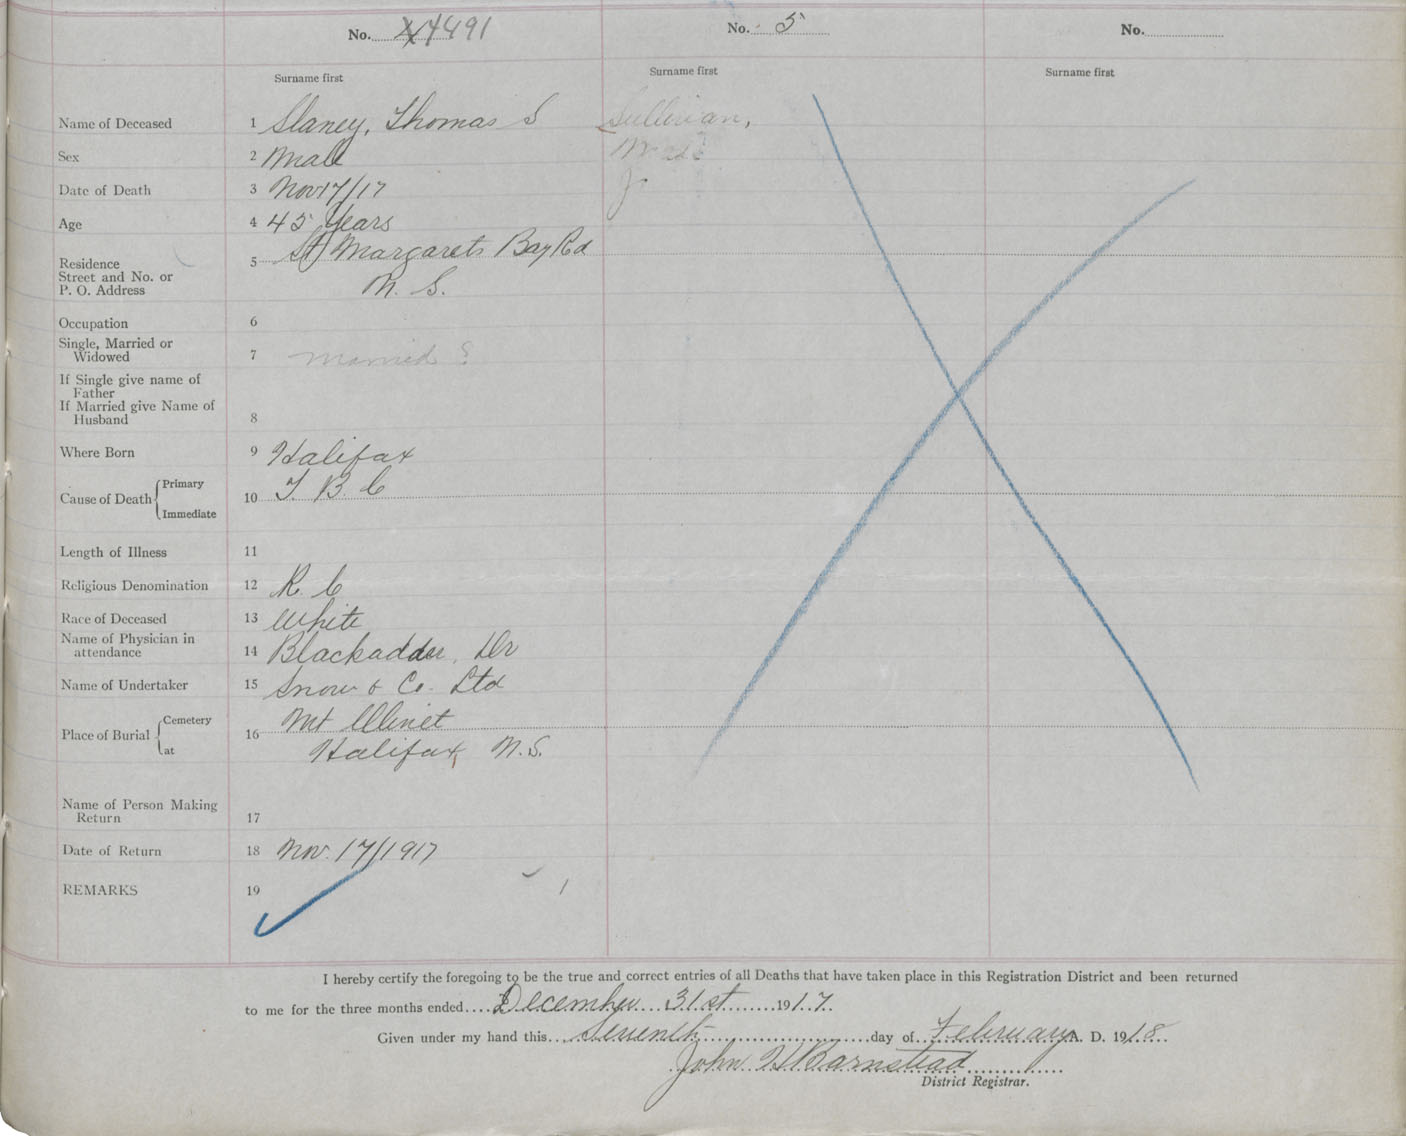 No. 4491
No. 5
No.
Surname first
Surname first
Surname first
Name of Deceased 1 Slaney, Thomas S Sullivan,
Sex 2 Male
Date of Death 3 Nov 17/17
Age 4 45 Years
Residence
Street and No. or
P. O. Address
5 St Margarets Bay Rd
N. S.
Occupation 6
Single, Married or
Widowed
7 Married ?
If Single give name of
Father
If Married give Name of
Husband
8
Where Born 9 Halifax
Cause of Death Primary
Immediate
10 T B C
Length of Illness 11
Religious Denomination 12 R. C
Race of Deceased 13 White
Name of Physician in
attendance
14 Blackadder, Dr
Name of Undertaker 15 Snow & Co. Ltd
Place of Burial Cemetery
at
16 Mt Olivet
Halifax, N.S.
Name of Person Making
Return
17
Date of Return 18 Nov. 17/1917
REMARKS 19
I hereby certify the foregoing to be the true and correct entries of all Deaths that have taken place in this Registration District and been returned
to me for the three months ended December 31st 1917.
Given under my hand this Seventh day of February A. D. 1918.
John H Barnstead
District Registrar.